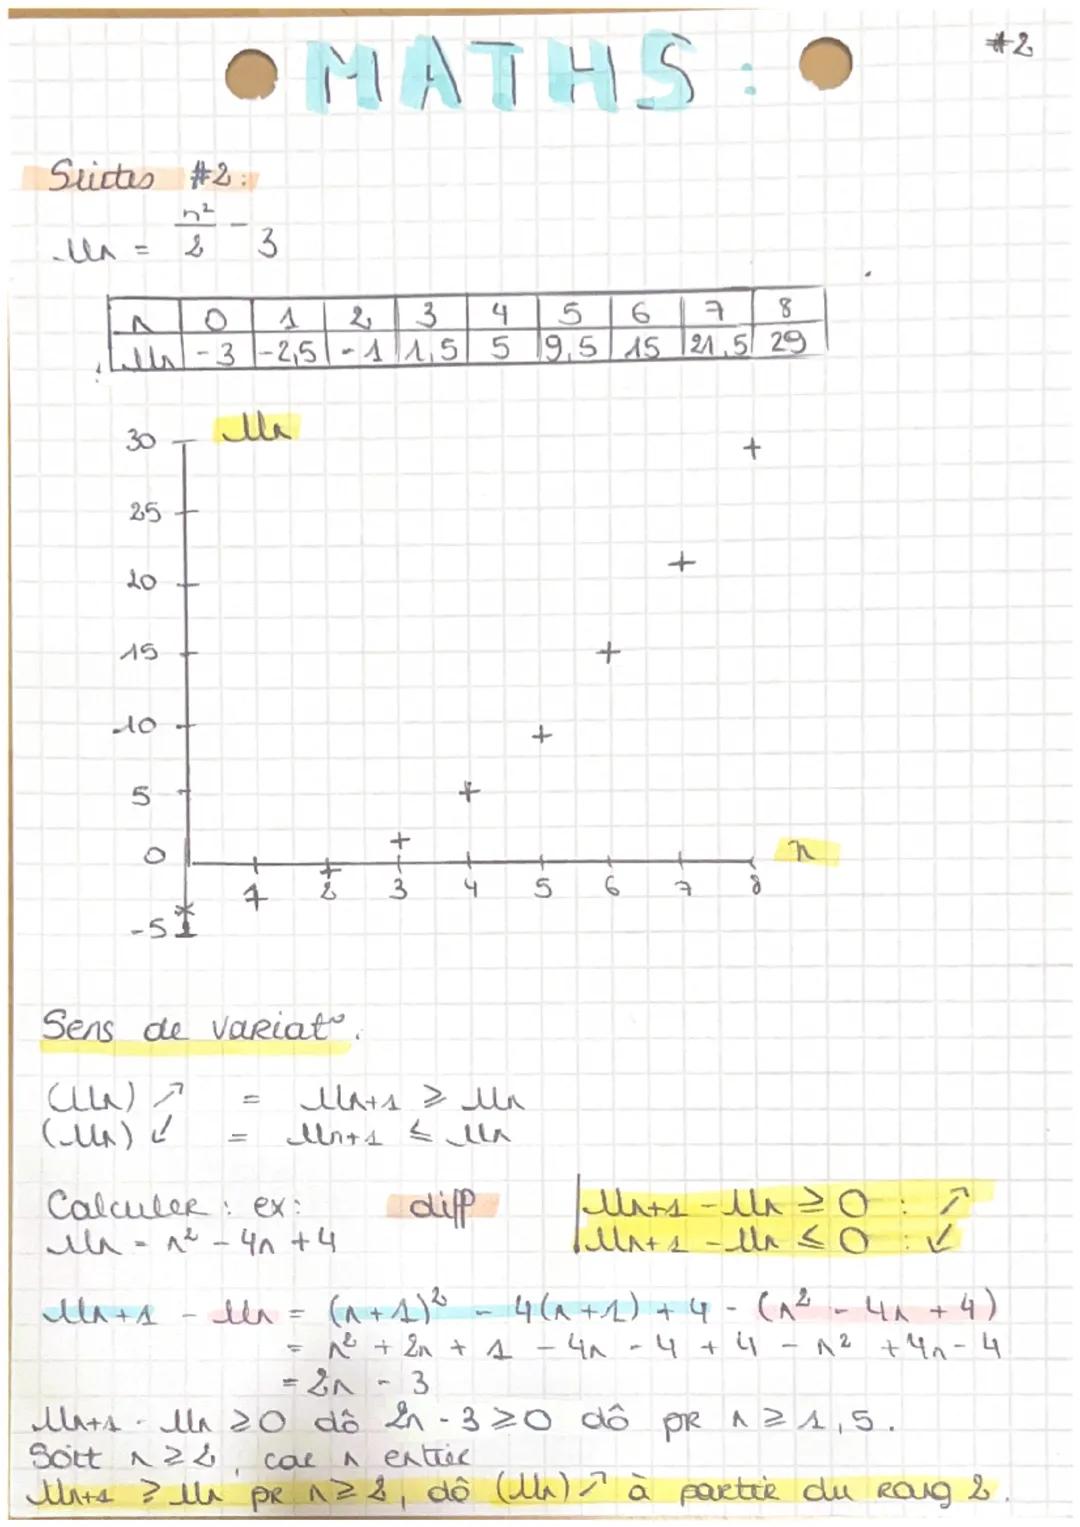 #2
MATHS :
Suites #2 :
Un = n²/2 - 3
n 0 1 2 3 4 5 6 7 8
Un -3 -2,5 -1 1,5 5 9,5 15 21,5 29
Un
30
25
20
15
10
5
0
-5
1 2 3 4 5 6 7 8
n
Sens de variat°.
(Un) ↗ = Un+1 ≥ Un
(Un) ↙ = Un+1 ≤ Un
Calculer : ex : diff
Un = n² - 4n + 4
Un+1 - Un ≥ 0 : ↗
Un+1 - Un ≤ 0 : ↙
Un+1 - Un = (n+1)² - 4(n+1) + 4 - (n² - 4n + 4)
= n² + 2n + 1 - 4n - 4 + 4 - n² + 4n - 4
= 2n - 3
Un+1 - Un ≥ 0 dô 2n - 3 ≥ 0 dô pr n ≥ 1,5.
Soit n ≥ 2, car n entier
Un+1 ≥ Un pr n ≥ 2, dô (Un) ↗ à partir du rang 2.